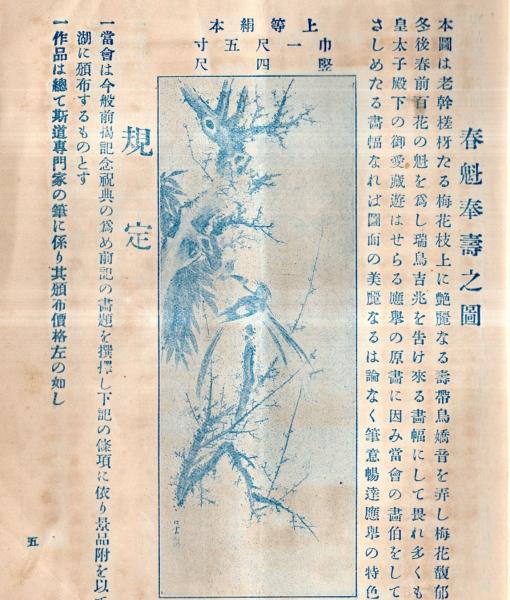 春魁奉壽之圖
本圖は老幹槎枒たる梅花枝上に艶麗なる壽帶鳥嬌音を弄し梅花馥郁
冬後春前百花の魁を爲し瑞鳥吉兆を告け來る畵幅にして畏れ多くも
皇太子殿下の御愛藏遊はせらる應擧の原畵に因み當會の畵伯をして
さしめたる畵幅なれば圖面の美麗なるは論なく筆意暢達應擧の特色
上等絹本
巾一尺五寸
竪四尺
規定
一當會は今般前揭記念祝典の爲め前記の畵題を撰擇し下記の條項に依り景品附を以て
湖に頒布するものとす
一作品は總て斯道專門家の筆に係り其頒布價格左の如し
五